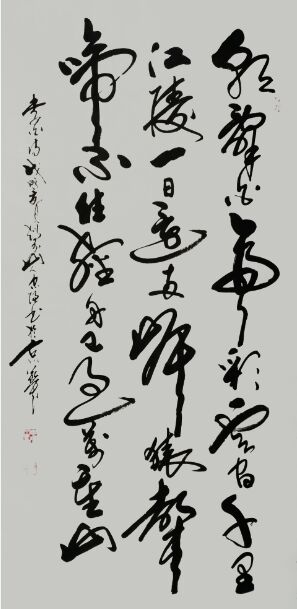 朝辞白帝彩云间千里
江陵一日还两岸猿声
啼不住轻舟已过万重山
李白诗